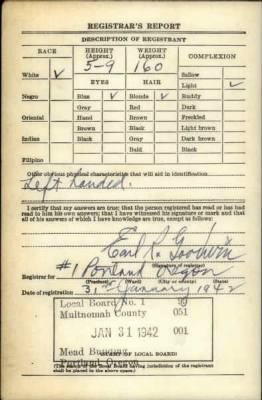 REGISTRAR'S REPORT
DESCRIPTION OF REGISTRANT
RACE
HEIGHT (Approx.)
WEIGHT (Approx.)
COMPLEXION
5-9
160
White ✓
Sallow
EYES
HAIR
Light ✓
Negro
Blue ✓
Blonde ✓
Ruddy
Gray
Red
Dark
Oriental
Hazel
Brown
Freckled
Brown
Black
Light brown
Indian
Black
Gray
Dark brown
Bald
Black
Filipino
Other obvious physical characteristics that will aid in identification
Left handed.
I certify that my answers are true; that the person registered has read or has had
read to him his own answers; that I have witnessed his signature or mark and that
all of his answers of which I have knowledge are true, except as follows:
Earl R. Goodwin
(Signature of registrar)
Registrar for #1 Portland Oregon
(Precinct) (City or county) (State)
Date of registration 31 January 1942
Local Board No. 1
Multnomah County 051
JAN 31 1942 001
Mead Building
Portland Oregon
(STAMP OF LOCAL BOARD)
(The stamp of the Local Board having jurisdiction of the registrant
shall be placed in the above space.)